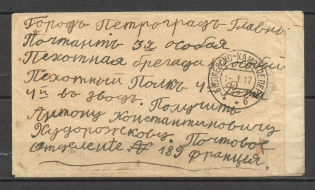 Городъ Петроградъ Главный
Почтамтъ 3я особая
Пехотная брегада 5 Особый
Пехотный Полкъ 4 рота
4й взводъ. Получить
Антону Константиновичу
Худорожскову. Почтово
отделение № 189 Франция.